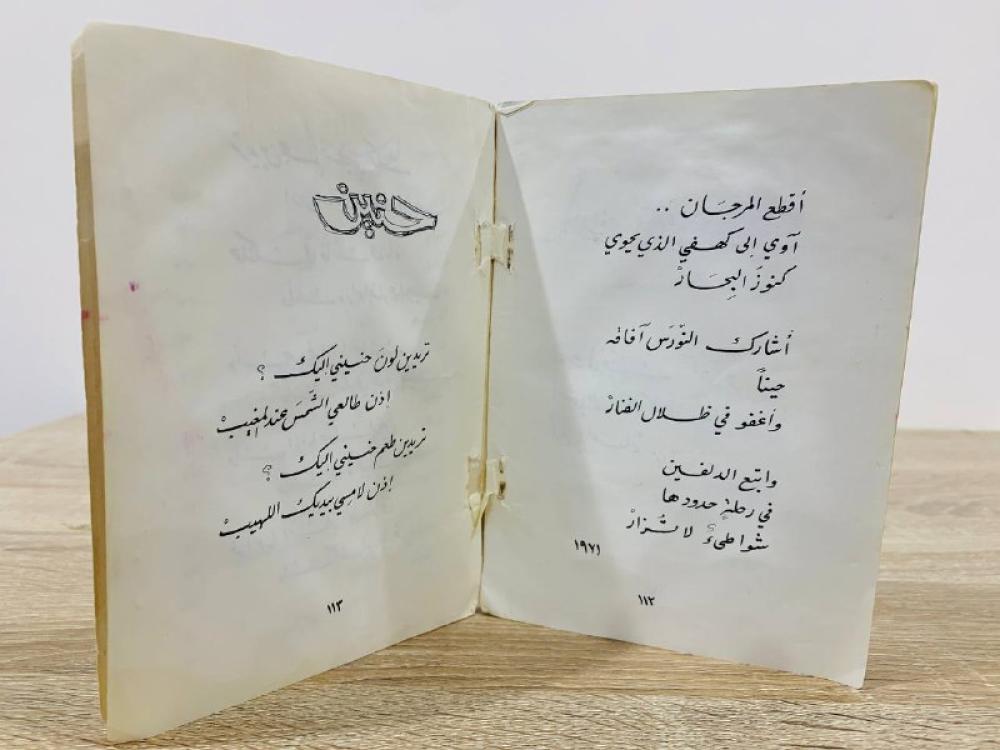 أقطع المرجَان ..
آوي إلى كهفي الذي يحوي
كنوزَ البِحَارْ
أشارك النوْرَس آفاقه
حيناً
وأغفو في ظلال الفنارْ
واتبع الدلفين
في رحلةٍ حدودها
شواطىءٌ لا تُزارْ
١٩٧١
١١٢
حنين
تريدين لونَ حنيني إليك ؟
إذن طالعي الشّمسَ عند المغيبْ
تريدين طعم حنيني إليك ؟
إذن لامسي بيديك اللهيبْ
١١٣